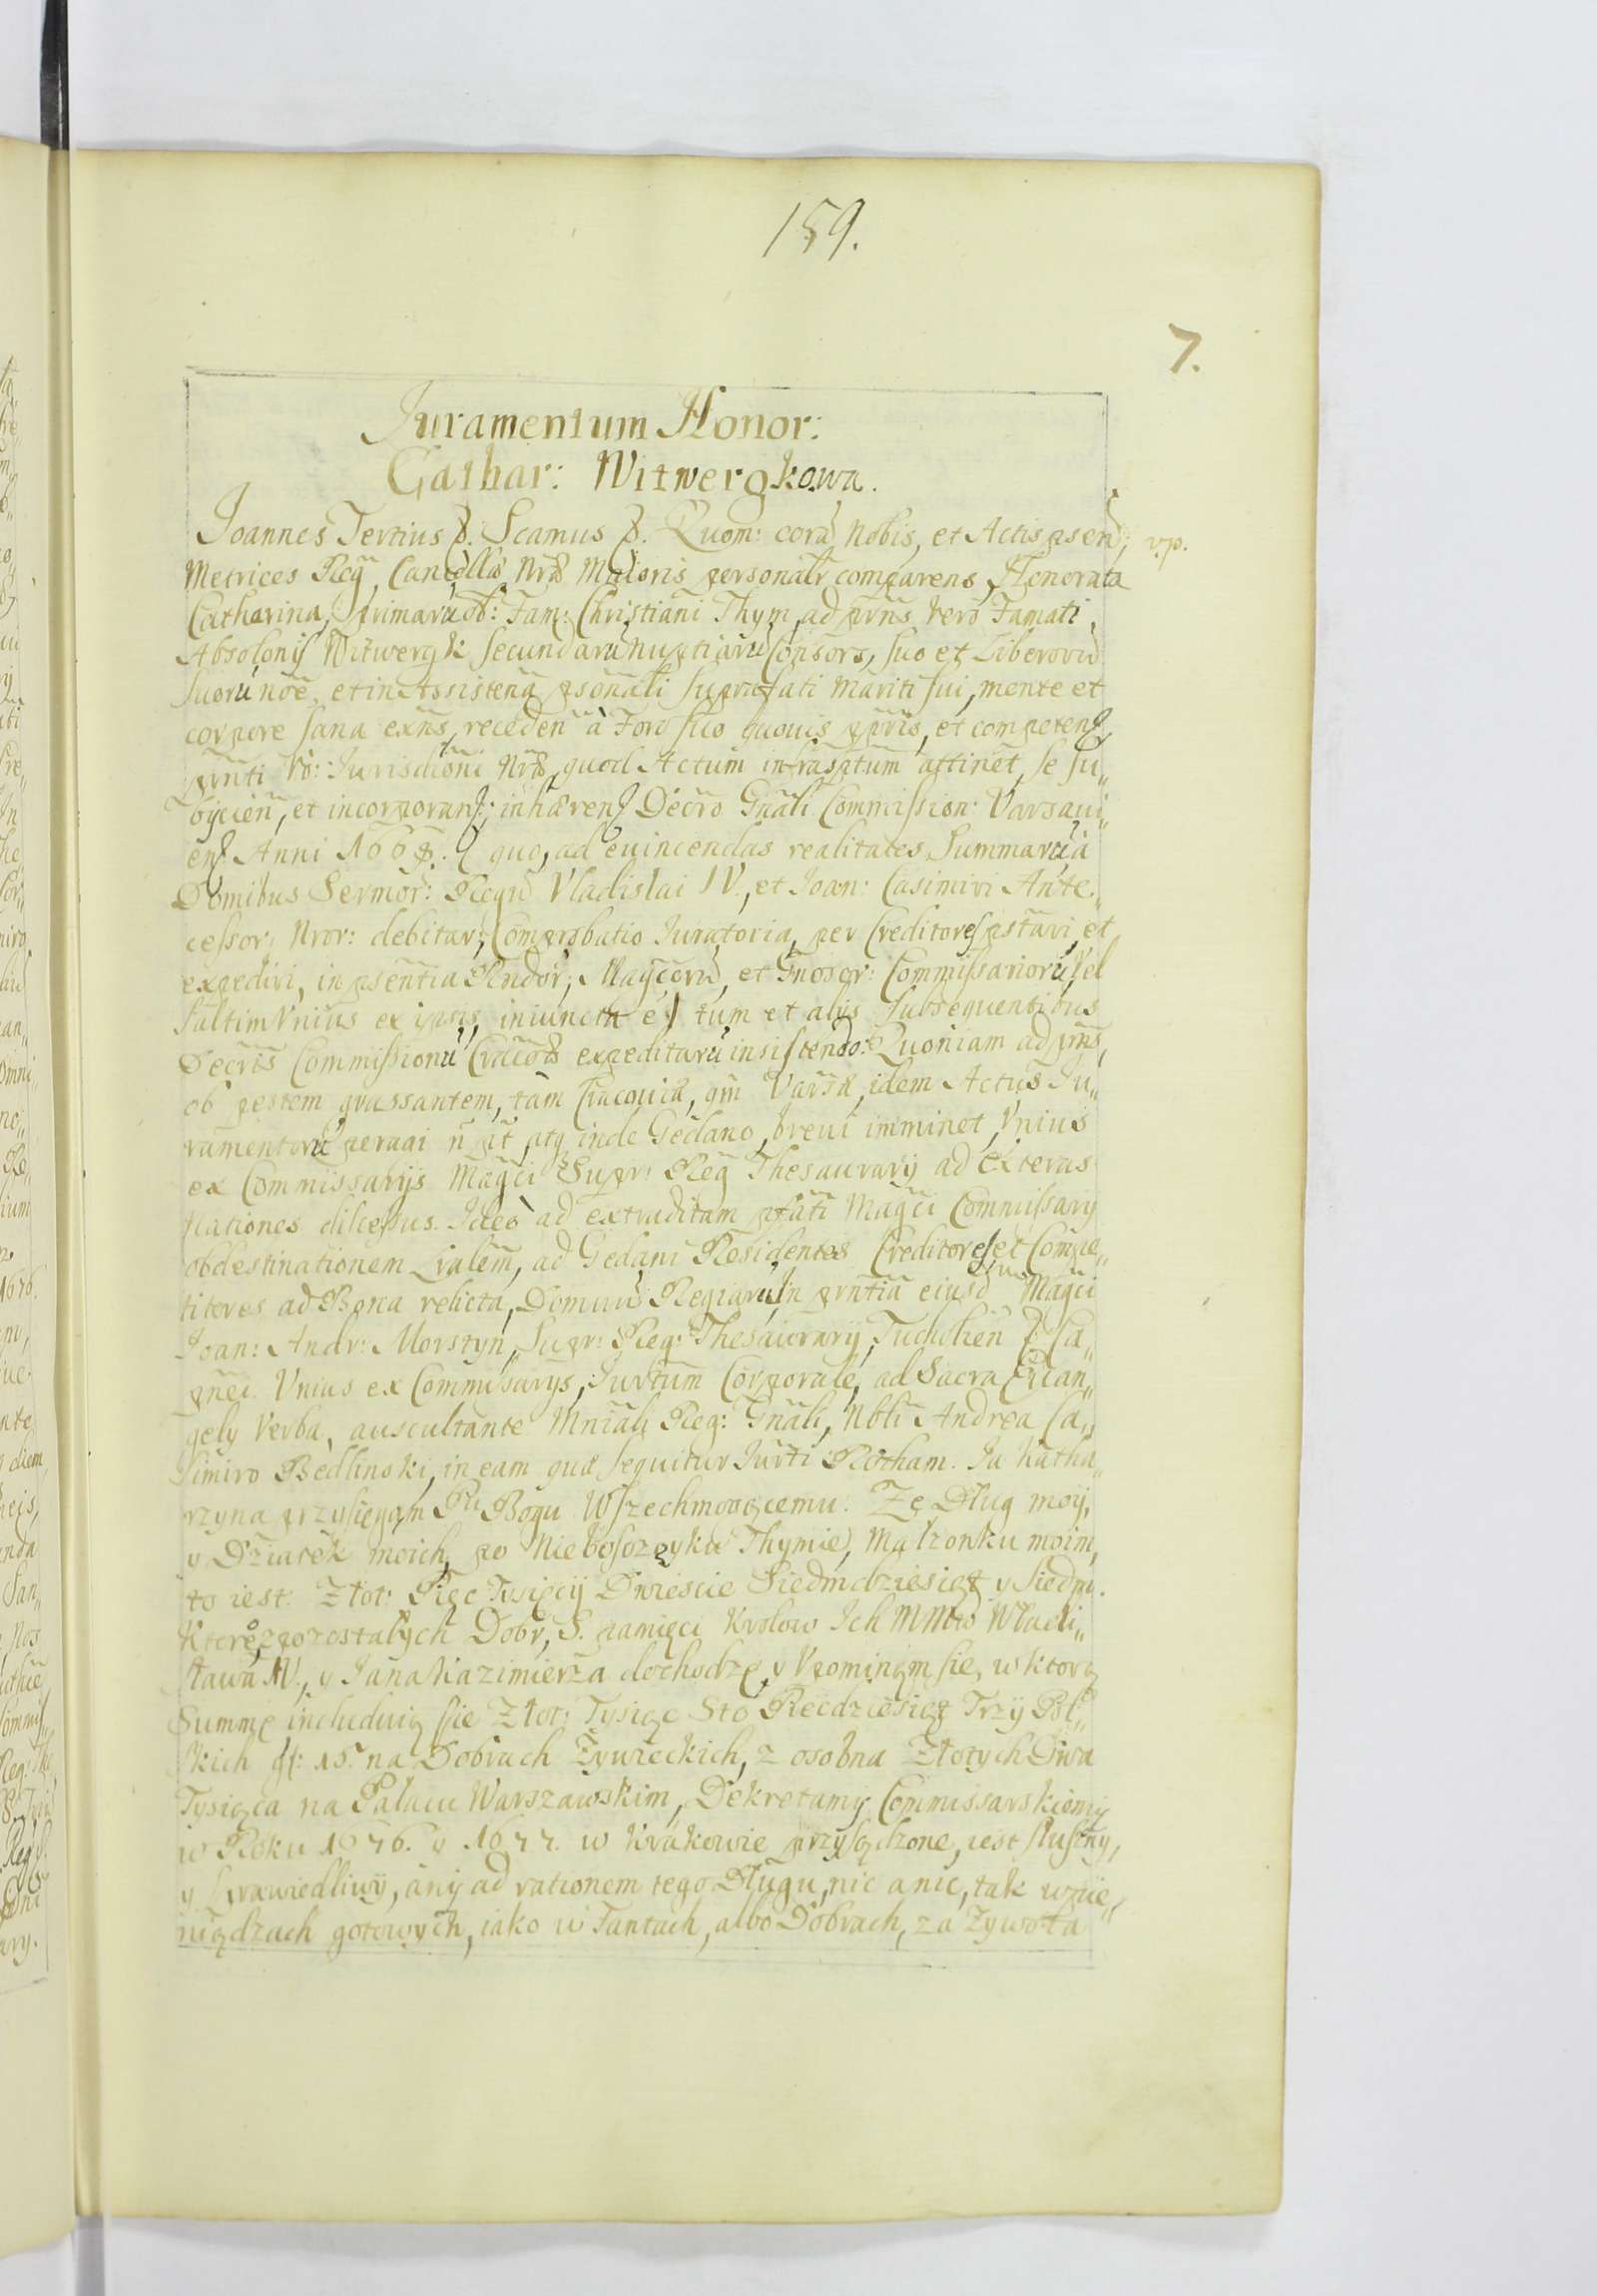 159.
7.
Juramentum Honor:
Cathar: Witwergkowa.
Joannes Tertius &. Scamus &. Quom: corã Nobis, et Actis psend; v.p.
Metrices Regñ, Cancellæ Nræ Maioris personalr comparens, Honorata
Catharina, primarũ ob: Fam: Christiani Thym, ad prñs vero Famati
Absolonis Witwergk secundarũ nuptiarũ Consors, suo et Liberorũ
suorũ noẽ, et in Assistena psonali suprafati Mariti sui, mente et
corpore sana exñs, receden à Foro suo quouis ppris, et competen,
prñti võ: Jurisdictioni Nræ, quod Actum infrasptum attinet, se su„
byicien, et incorporan; inhæren Decro Gñali Commission: Varsaui„
en Anni 1668. quo, ad euincendas realitates, Summarũ, à
Domibus Sermor: Regũ Vladislai IV., et Joan: Casimiri Ante„
cessor: Nror: debitar; Comprobatio Juratoria, per Creditores pstari, et
expediri, in psentia Rndor; Magcorũ, et Gnosor: Commissariorũ, Vel
saltim Vnius ex ipsis, iniuncta e, tum et alys subsequentibus
Decris Commissionũ Cracoæ expeditarũ insistendo. Quoniam ad prñs,
ob pestem grassantem, tam Cracouiæ, qm Varsæ, idem Actus Ju„
ramentorũ peragi ñ pt, atq inde Gedano, breui imminet, Vnius
ex Commissarys Magci Supr: Reg Thesaurary ad exteras
nationes discessus. Ideo ad extraditam pfati Magci Commissary
obdestinationem Lralem, ad Gedani Residentes Creditores, et Compe„
titores ad Bona relicta, Domuũ Regiarũ, In prñtia eiusd Magci
Joan: Andr: Morstyn, Supr: Reg: Thesaurary, Tucholien & Ca„
pnei Vnius ex Commisarys, Jurtum Corporale, ad Sacra Euan„
gely Verba, auscultante Mniali Reg: Gnali, Nbli Andrea Ca„
simiro Bedlinski, in eam quæ sequitur Jurti Rotham. Ja Katha„
rzyna przysięgąm Pu Bogu Wszechmogącemu. Zę Dług moij,
y Dziatek moich, po Nieboszczyku Thymie, Małzonku moim,
to iest Złot: Pięc Tysięcij Dwiescie Siedmdziesiąt y siedm.
Ktorego z pozostałych Dobr, S. pamięci Krolow Ich MMśw Władi„
sława IV., y Jana Kazimierza dochodzę, y Vpominąm sie, w ktorą
Summę includuią sie Złot: Tysiąc Sto Piecdziesiąt Trzy Pol„
skich gr: 15. na Dobrach Zywieckich, z osobna Złotych Dwa
Tysiąca na Pałacu Warszawskim, Dekretamy Commissarskiemij
w Roku 1676. y 1677. w Krakowie przysądzone, iest słuszny,
y sprawiedliwij, anij ad rationem tego Długu, nic a nic, tak w pie„
niądzach gotowych, iako w Fantach, albo Dobrach, za Zywota